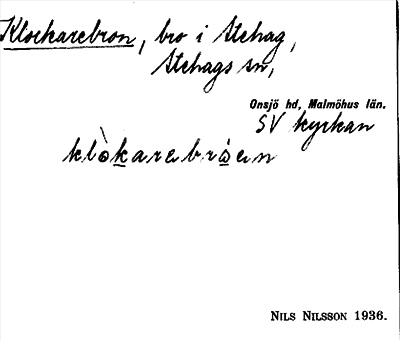 Klockarebron, bro i Stehag,
Stehags sn,
Onsjö hd, Malmöhus län.
SV kyrkan
klòkarebrǻen
NILS NILSSON 1936.